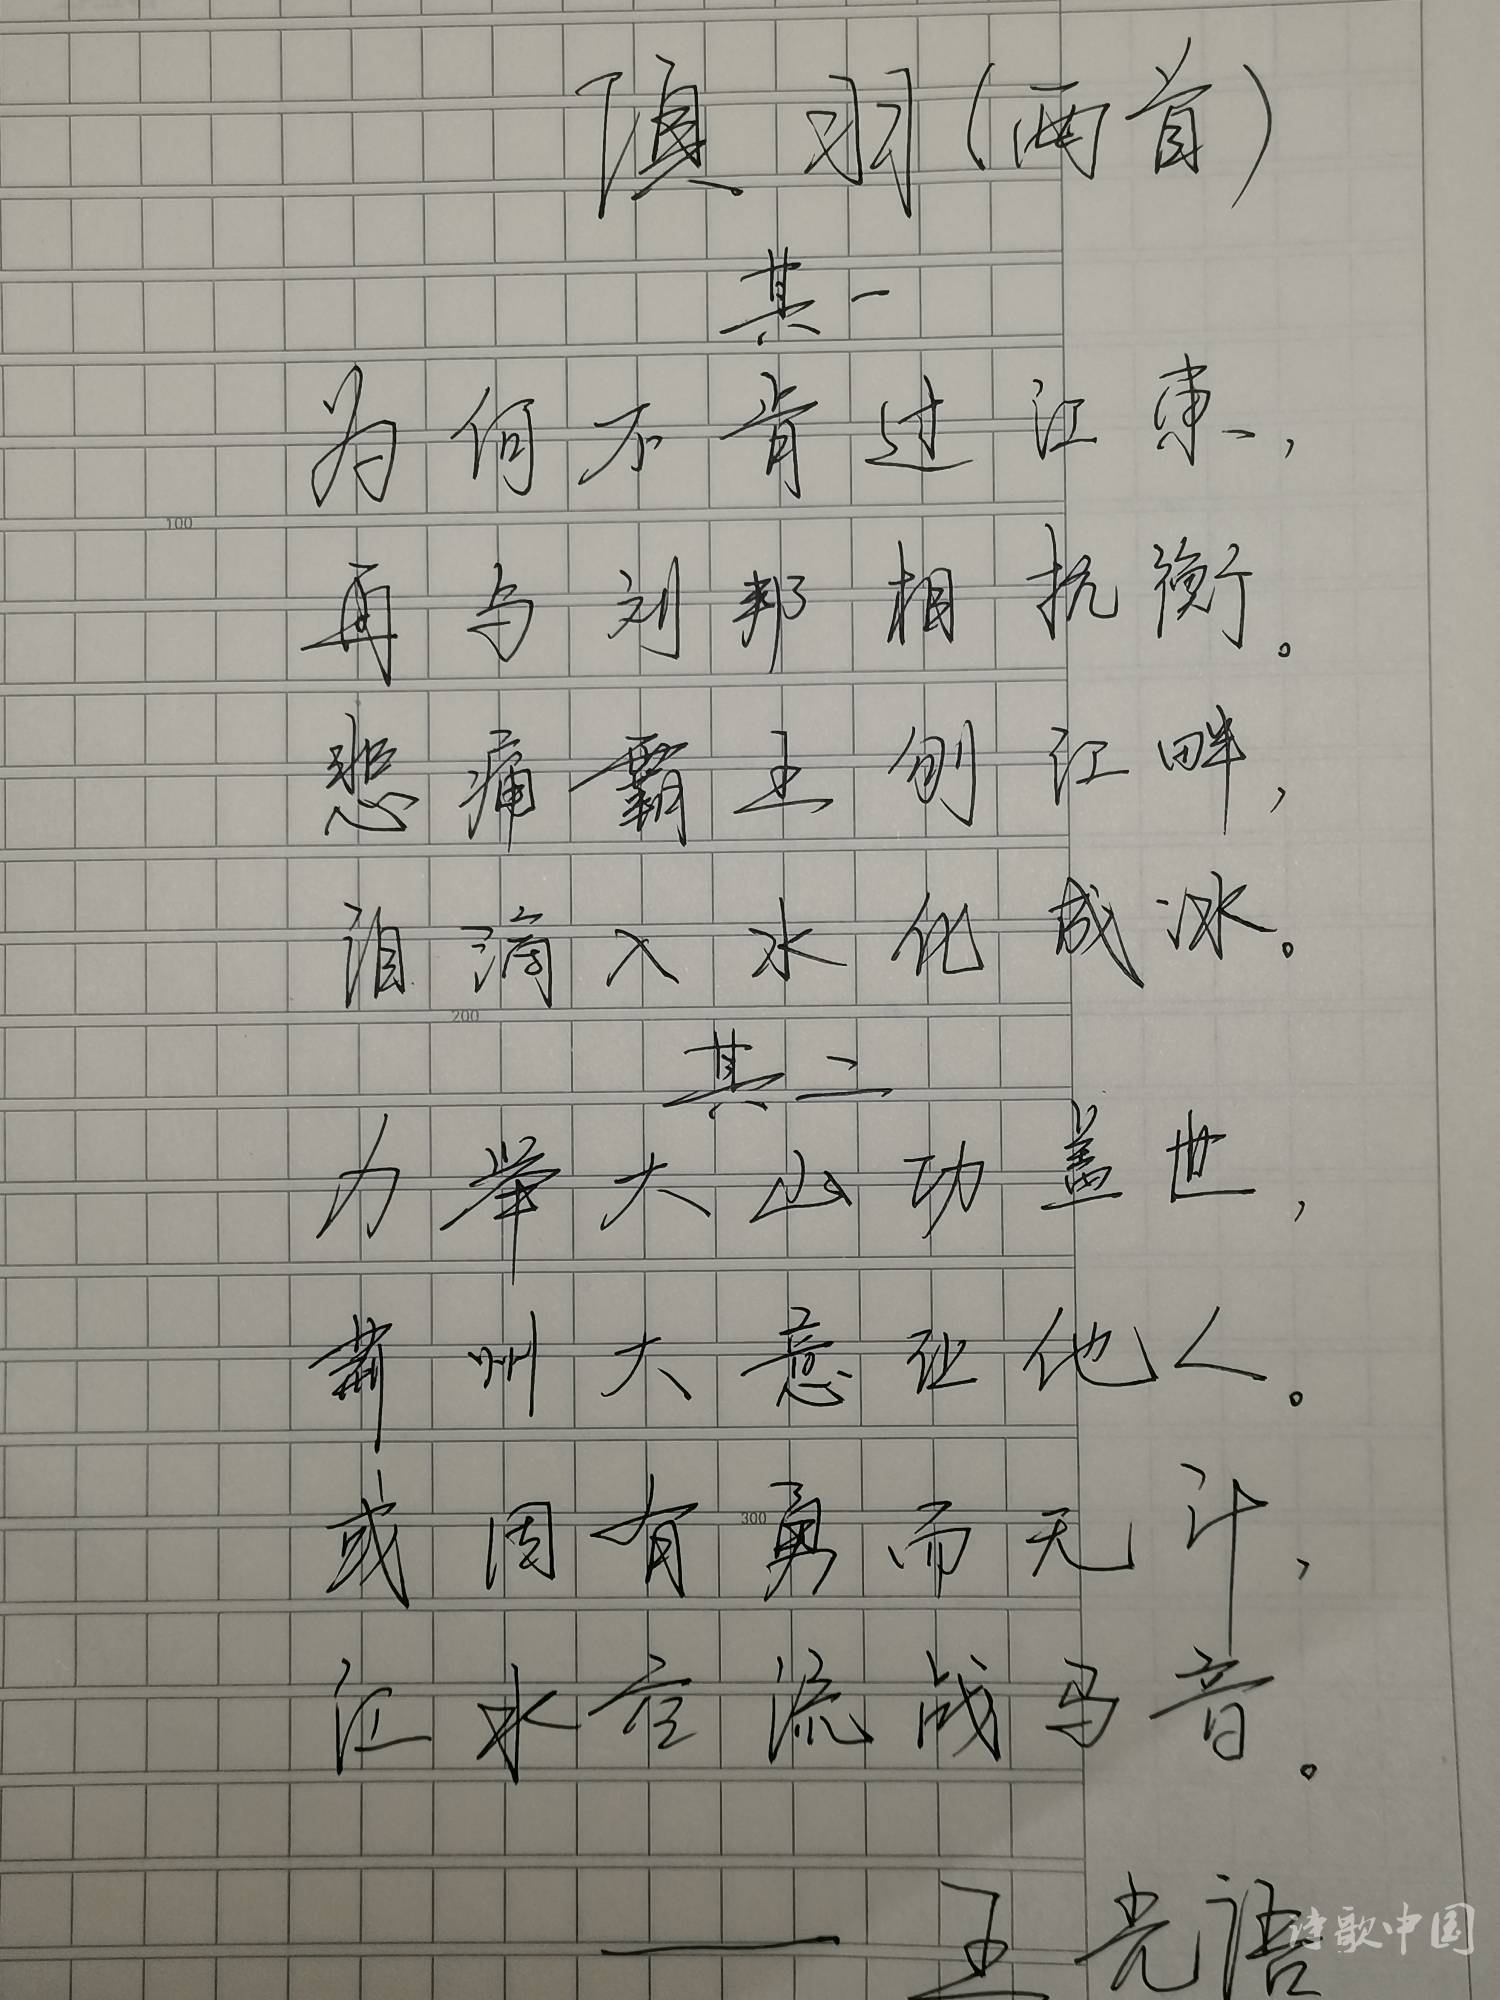 项羽(两首)
其一
为何不肯过江东,
再与刘邦相抗衡。
悲痛霸王刎江畔,
泪滴入水化成冰。
其二
力举大山功盖世,
荆州大意让他人。
或因有勇而无计,
江水空流战马音。
——王光语
诗歌中国
100
200
300